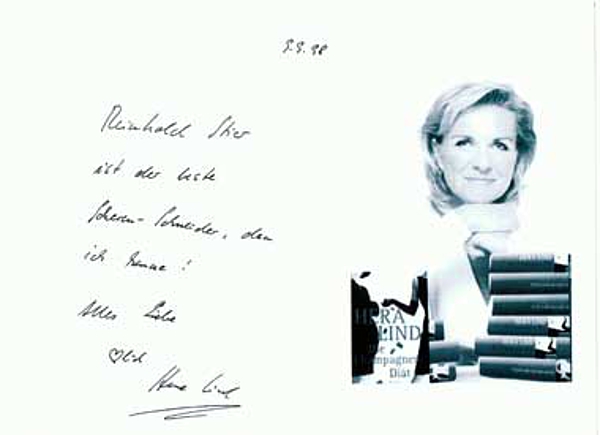 9.9.98
Reinhold Stier
ist der beste
Scheren-Schneider, den
ich kenne!
Alles Liebe
♡lich
Hera Lind
HERA
LIND
Die
Champagner
Diät